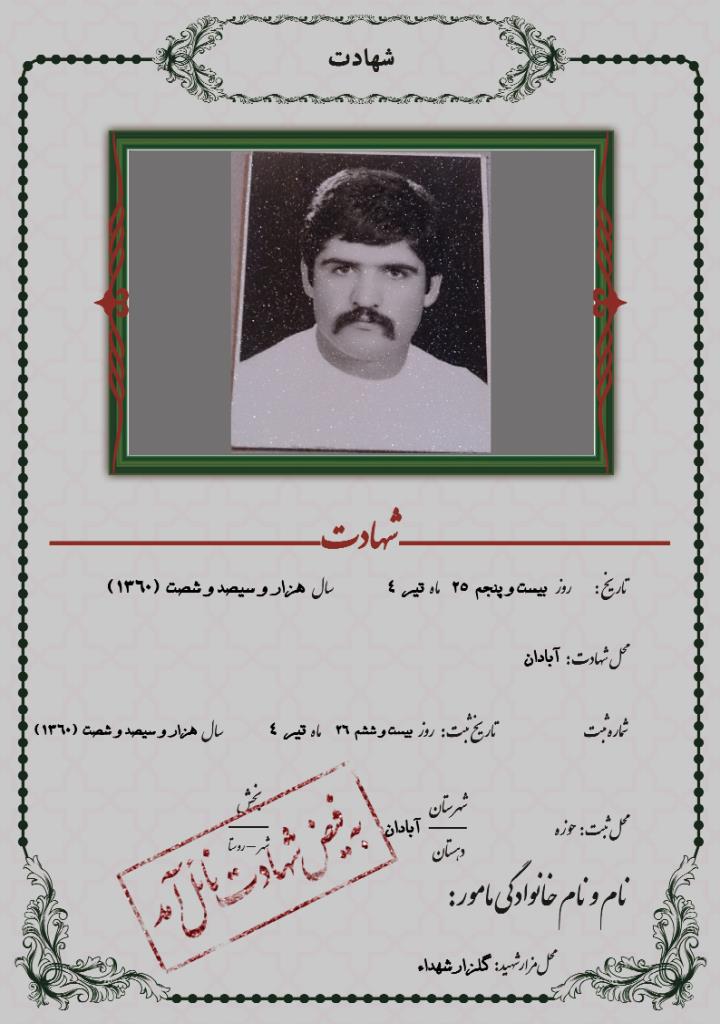 شهادت
شهادت
تاریخ: روز بیست و پنجم ۲۵ ماه تیر ۴ سال هزار و سیصد و شصت (۱۳۶۰)
محل شهادت: آبادان
شماره ثبت تاریخ ثبت: روز بیست و ششم ۲۶ ماه تیر ۴ سال هزار و سیصد و شصت (۱۳۶۰)
محل ثبت: حوزه شهرستان آبادان بخش
دهستان شهر-روستا
به فیض شهادت نائل آمد
نام و نام خانوادگی مامور:
محل مزار شهید: گلزار شهداء